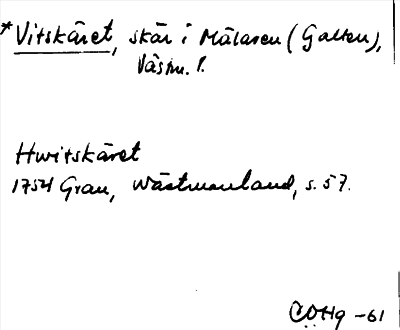 *Vitskäret, skär i Mälaren (Galten),
Västm. l.
Hwitskäret
1754 Grau, Wästmanland, s. 57.
CÖHg -61